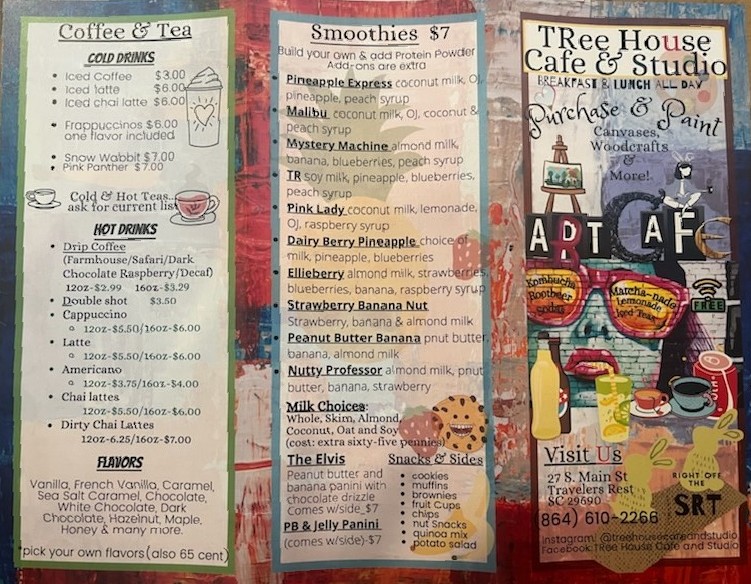 Coffee & Tea
COLD DRINKS
• Iced Coffee $3.00
• Iced latte $6.00
• Iced chai latte $6.00
• Frappuccinos $6.00
one flavor included
• Snow Wabbit $7.00
• Pink Panther $7.00
Cold & Hot Teas...
ask for current list
HOT DRINKS
• Drip Coffee
(Farmhouse/Safari/Dark
Chocolate Raspberry/Decaf)
12oz-$2.99 16oz-$3.29
• Double shot $3.50
• Cappuccino
12oz-$5.50/16oz-$6.00
• Latte
12oz-$5.50/16oz-$6.00
• Americano
12oz-$3.75/16oz-$4.00
• Chai lattes
12oz-$5.50/16oz-$6.00
• Dirty Chai Lattes
12oz-6.25/16oz-$7.00
FLAVORS
Vanilla, French Vanilla, Caramel,
Sea Salt Caramel, Chocolate,
White Chocolate, Dark
Chocolate, Hazelnut, Maple,
Honey & many more.
*pick your own flavors(also 65 cent)
Smoothies $7
Build your own & add Protein Powder
Add-ons are extra
• Pineapple Express coconut milk, OJ,
pineapple, peach syrup
• Malibu coconut milk, OJ, coconut &
peach syrup
• Mystery Machine almond milk,
banana, blueberries, peach syrup
• TR soy milk, pineapple, blueberries,
peach syrup
• Pink Lady coconut milk, lemonade,
OJ, raspberry syrup
• Dairy Berry Pineapple choice of
milk, pineapple, blueberries
• Ellieberry almond milk, strawberries,
blueberries, banana, raspberry syrup
• Strawberry Banana Nut
Strawberry, banana & almond milk
• Peanut Butter Banana pnut butter,
banana, almond milk
• Nutty Professor almond milk, pnut
butter, banana, strawberry
Milk Choices:
Whole, Skim, Almond,
Coconut, Oat and Soy
(cost: extra sixty-five pennies)
The Elvis
Peanut butter and
banana panini with
chocolate drizzle
Comes w/side $7
PB & Jelly Panini
(comes w/side)-$7
Snacks & Sides
• cookies
• muffins
• brownies
• fruit Cups
• chips
• nut Snacks
• quinoa mix
• potato salad
TRee House
Cafe & Studio
BREAKFAST & LUNCH ALL DAY
Purchase & Paint
Canvases,
Woodcrafts
&
More!
ART CAFE
Kombucha
Rootbeer
Sodas
Matcha-nade
Lemonade
Iced Teas
FREE
COLA
Visit Us
27 S. Main St
Travelers Rest
SC 29690
(864) 610-2266
RIGHT OFF
THE
SRT
Instagram: @treehousecafeandstudio
Facebook:TRee House Cafe and Studio